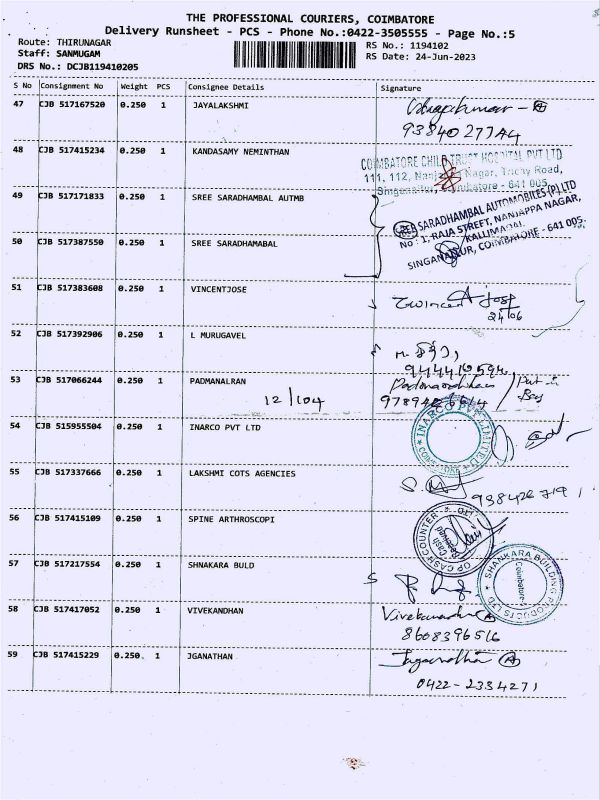 THE PROFESSIONAL COURIERS, COIMBATORE
Delivery Runsheet - PCS - Phone No.:0422-3505555 - Page No.:5
Route: THIRUNAGAR
Staff: SANMUGAM
DRS No.: DCJB119410205
RS No.: 1194102
RS Date: 24-Jun-2023
S No Consignment No Weight PCS Consignee Details Signature
47 CJB 517167520 0.250 1 JAYALAKSHMI
48 CJB 517415234 0.250 1 KANDASAMY NEMINTHAN
COIMBATORE CHILD TRUST HOSPITAL PVT LTD
111, 112, Nanjappa Nagar, Trichy Road,
Singanallur, Coimbatore - 641 005.
49 CJB 517171833 0.250 1 SREE SARADHAMBAL AUTMB
SREE SARADHAMBAL AUTOMOBILES (P) LTD
No : 1, RAJA STREET, NANJAPPA NAGAR,
KALLIMADAI,
SINGANALLUR, COIMBATORE - 641 005.
50 CJB 517387550 0.250 1 SREE SARADHAMABAL
51 CJB 517383608 0.250 1 VINCENTJOSE
24/06
52 CJB 517392906 0.250 1 L MURUGAVEL
53 CJB 517066244 0.250 1 PADMANALRAN
12/104
54 CJB 515955504 0.250 1 INARCO PVT LTD
INARCO PVT LIMITED
55 CJB 517337666 0.250 1 LAKSHMI COTS AGENCIES
56 CJB 517415109 0.250 1 SPINE ARTHROSCOPI
OP CASH COUNTER
Cash
Received
57 CJB 517217554 0.250 1 SHNAKARA BULD
SHANKARA BUILDING PRODUCTS LTD
Coimbatore
58 CJB 517417052 0.250 1 VIVEKANDHAN
8608396516
59 CJB 517415229 0.250 1 JGANATHAN
Jaganathan
0422-2334271